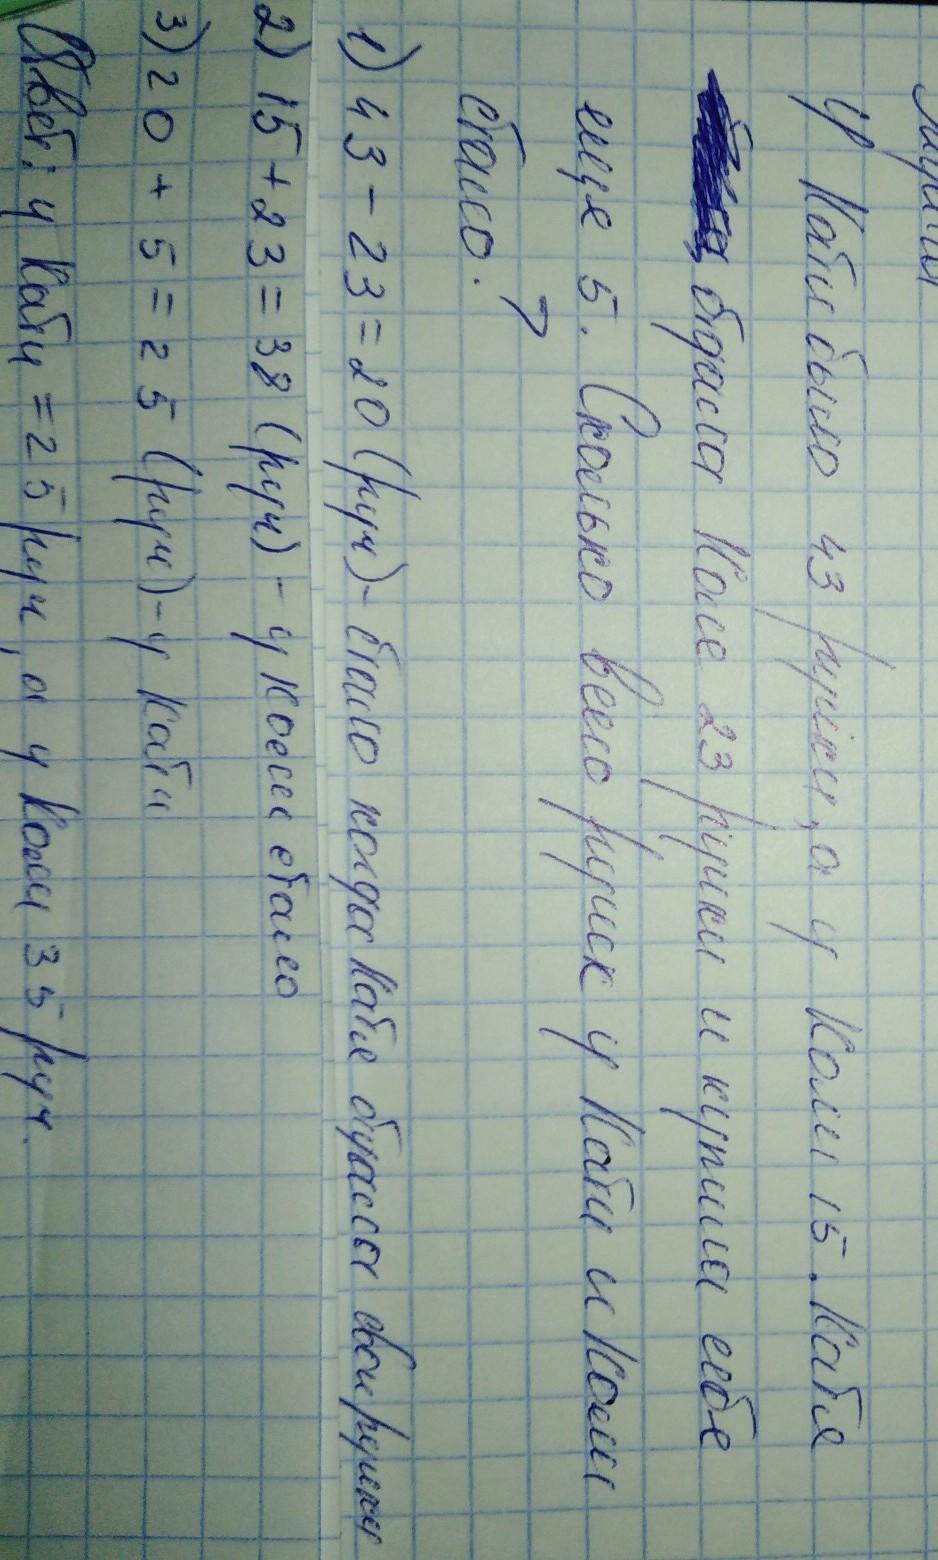 У Кати было 43 ручки, а у Коли 15. Катя
отдала Коле 23 ручки и купила себе
еще 5. Сколько всего ручек у Кати и Коли
стало?
1) 43 - 23 = 20 (руч) - стало когда Катя отдала свои ручки
2) 15 + 23 = 38 (руч) - у Коли стало
3) 20 + 5 = 25 (руч) - у Кати
Ответ: у Кати = 25 руч, а у Коли 35 руч.